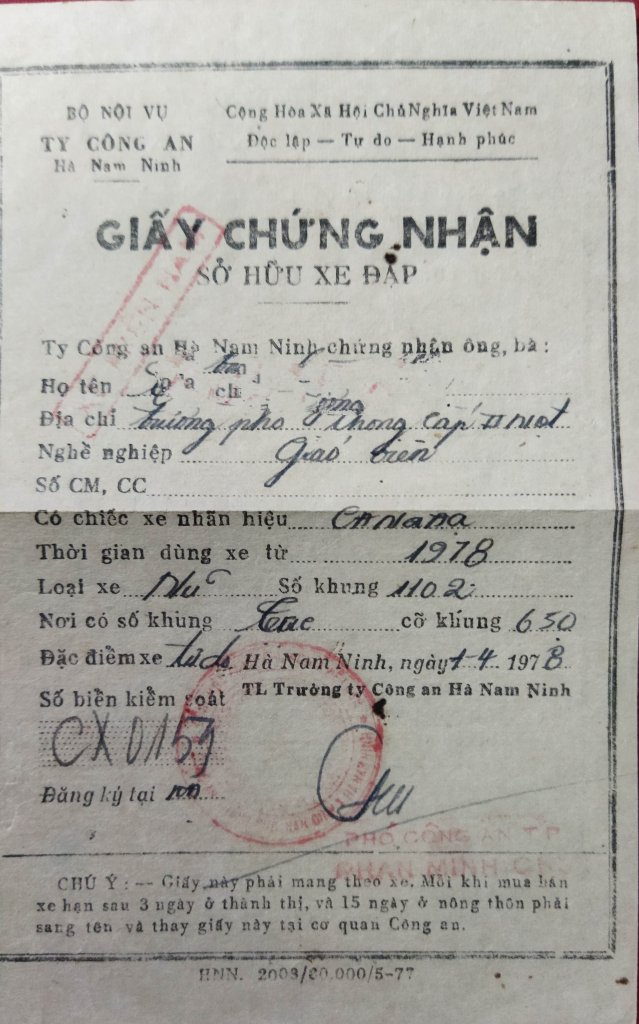 BỘ NỘI VỤ
TY CÔNG AN
Hà Nam Ninh
Cộng Hòa Xã Hội Chủ Nghĩa Việt Nam
Độc lập — Tự do — Hạnh phúc
GIẤY CHỨNG NHẬN
SỞ HỮU XE ĐẠP
Ty Công an Hà Nam Ninh chứng nhận ông, bà :
Họ tên
Địa chỉ trường phổ thông cấp II
Nghề nghiệp Giáo viên
Số CM, CC
Có chiếc xe nhãn hiệu CANADA
Thời gian dùng xe từ 1978
Loại xe Nữ Số khung 1102
Nơi có số khung cỡ khung 650
Đặc điểm xe tự do Hà Nam Ninh, ngày 1-4 1978
TL Trưởng ty Công an Hà Nam Ninh
Số biển kiểm soát
CX0159
Đăng ký tại
PHÓ CÔNG AN T.P
CHÚ Ý : — Giấy này phải mang theo xe. Mỗi khi mua bán
xe hạn sau 3 ngày ở thành thị, và 15 ngày ở nông thôn phải
sang tên và thay giấy này tại cơ quan Công an.
HNN. 2003/60.000/5-77